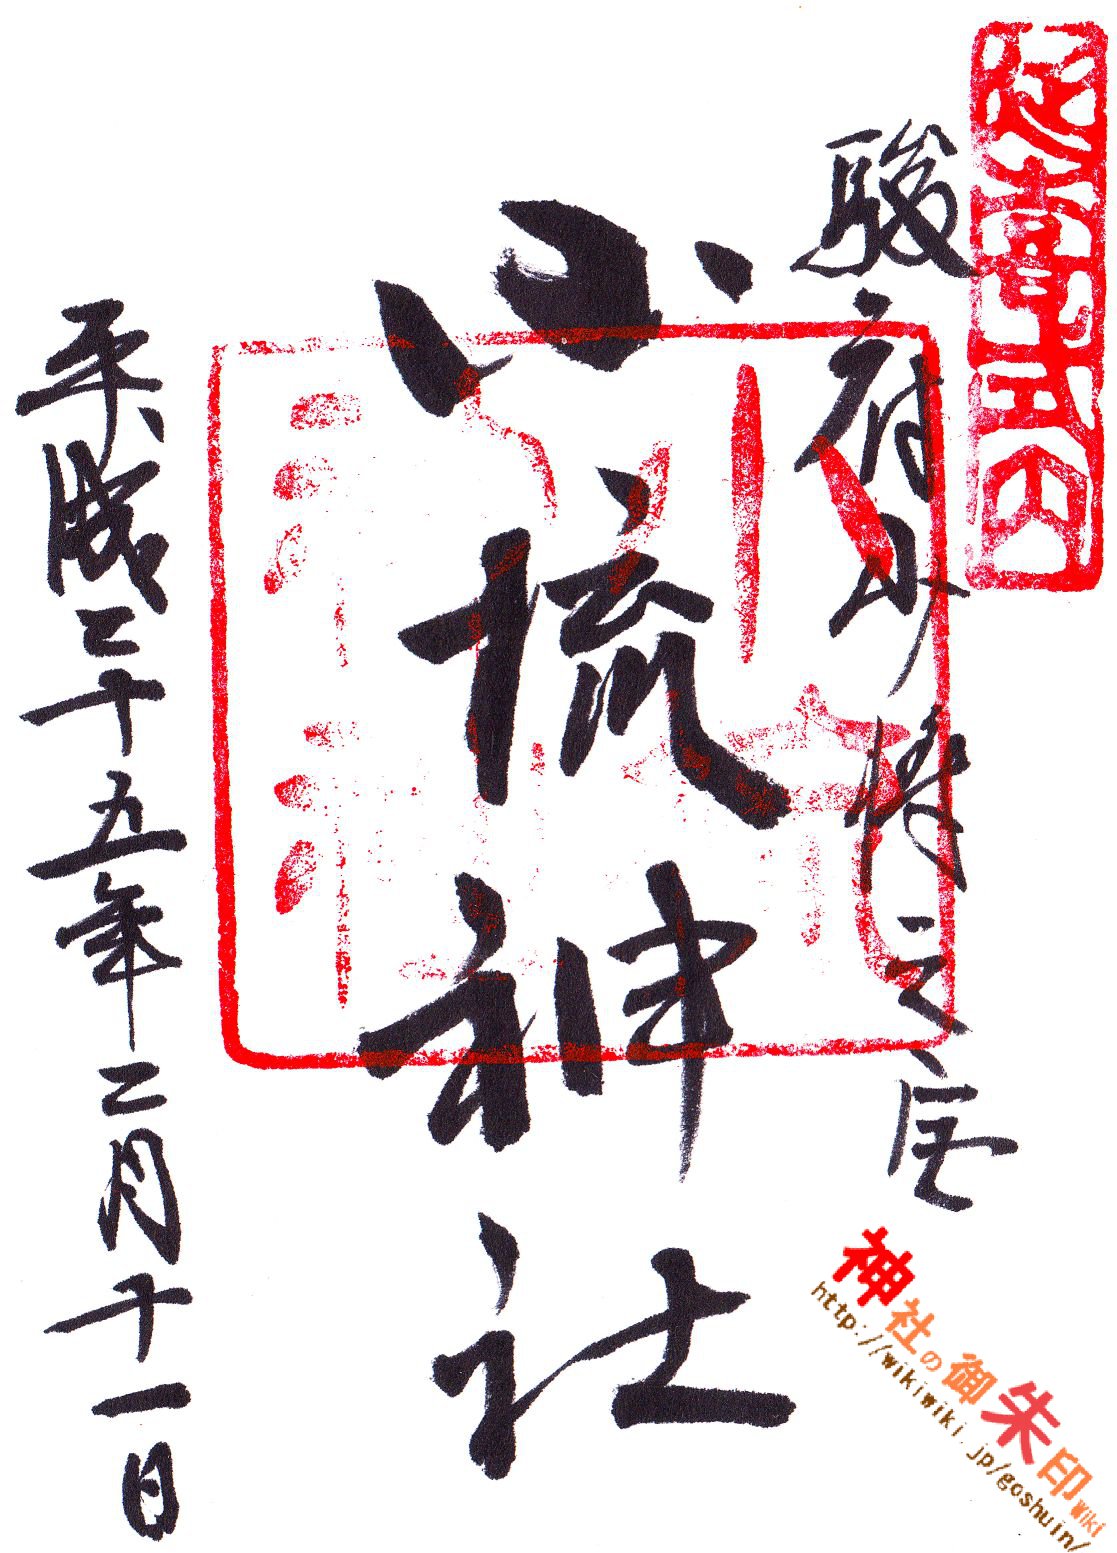 延喜式内
駿府町情之宮
小梳神社
平成二十五年二月十一日
神社の御朱印Wiki
http://wikiwiki.jp/goshuin/